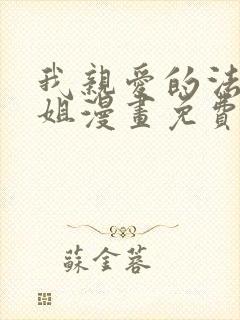 我親愛的法
姐漫畫免費
蘇金蓉